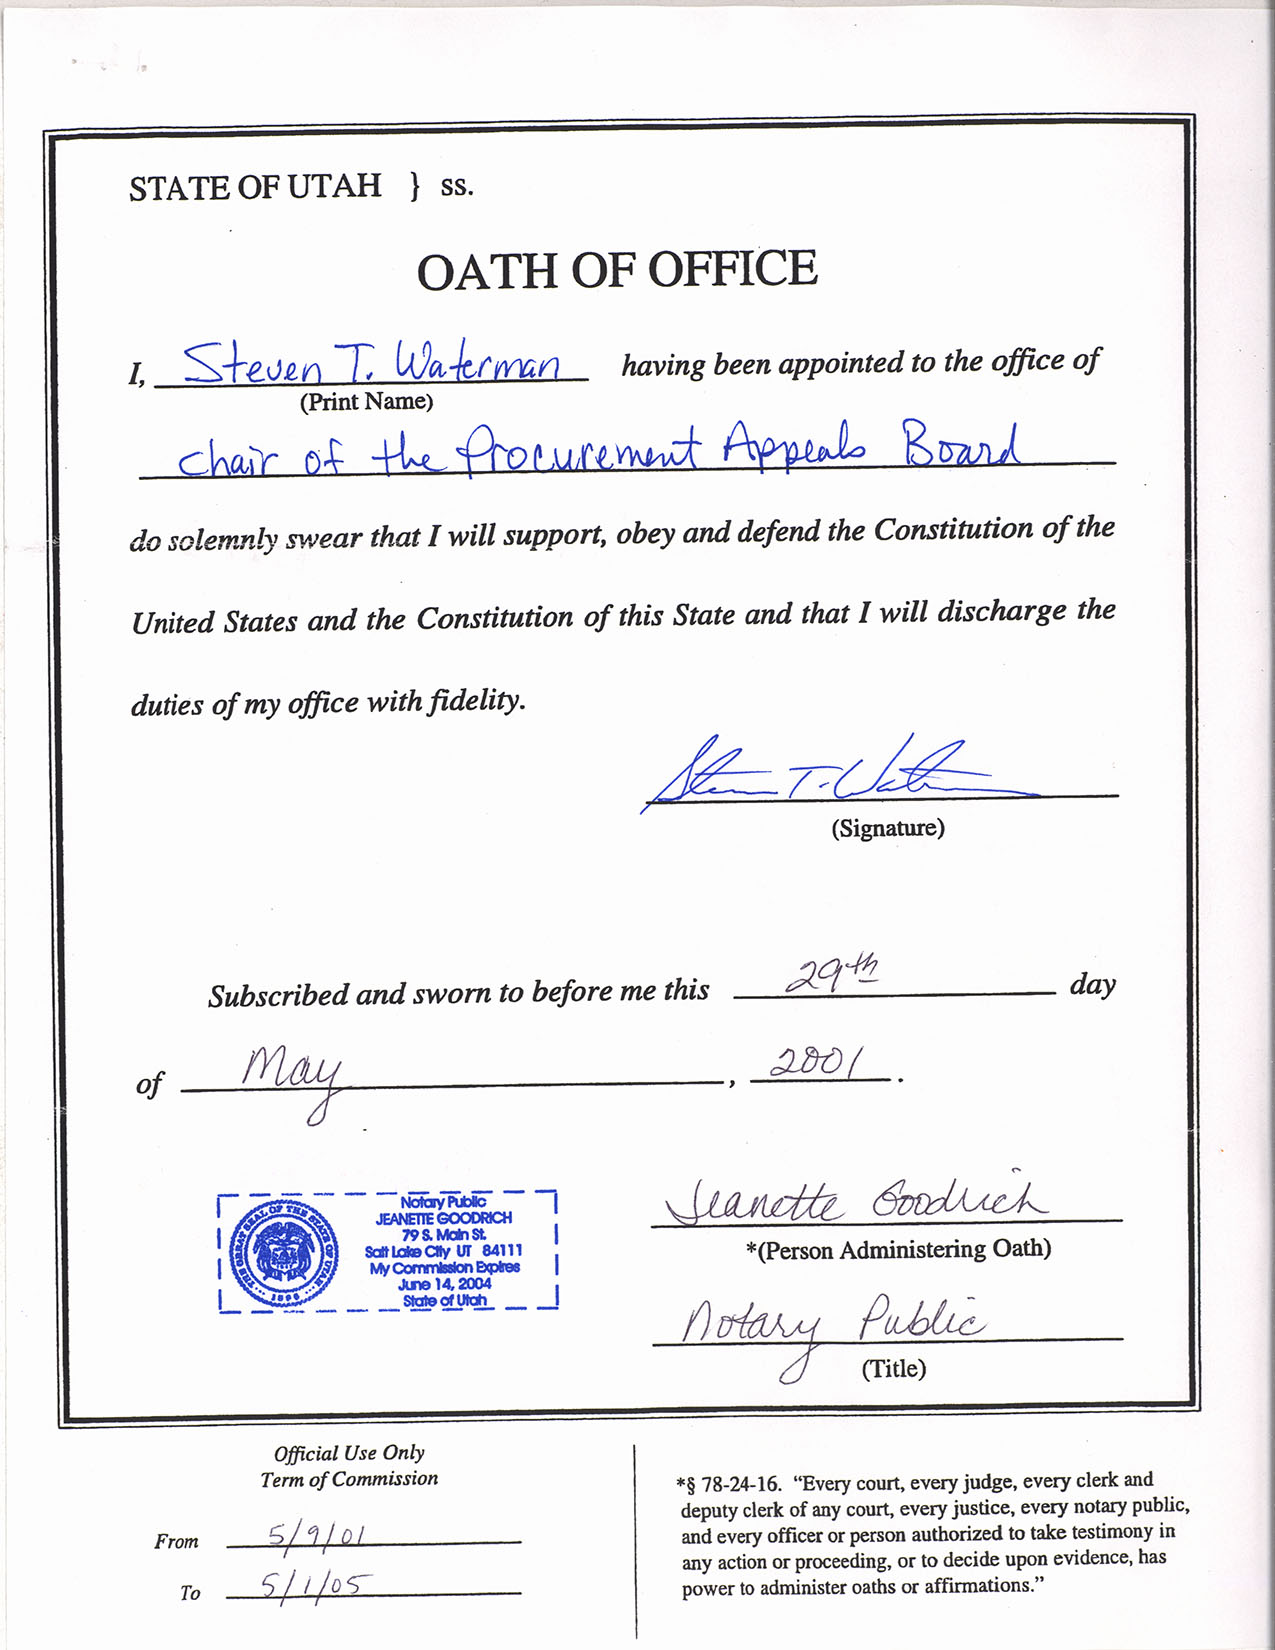 STATE OF UTAH } ss.
OATH OF OFFICE
I, Steven T. Waterman having been appointed to the office of
(Print Name)
chair of the Procurement Appeals Board
do solemnly swear that I will support, obey and defend the Constitution of the
United States and the Constitution of this State and that I will discharge the
duties of my office with fidelity.
Steven T. Waterman
(Signature)
Subscribed and sworn to before me this 29th day
of May, 2001.
Notary Public
JEANETTE GOODRICH
79 S. Main St.
Salt Lake City UT 84111
My Commission Expires
June 14, 2004
State of Utah
THE GREAT SEAL OF THE STATE OF UTAH
1896
Jeanette Goodrich
*(Person Administering Oath)
Notary Public
(Title)
Official Use Only
Term of Commission
From 5/9/01
To 5/1/05
*§ 78-24-16. “Every court, every judge, every clerk and
deputy clerk of any court, every justice, every notary public,
and every officer or person authorized to take testimony in
any action or proceeding, or to decide upon evidence, has
power to administer oaths or affirmations.”